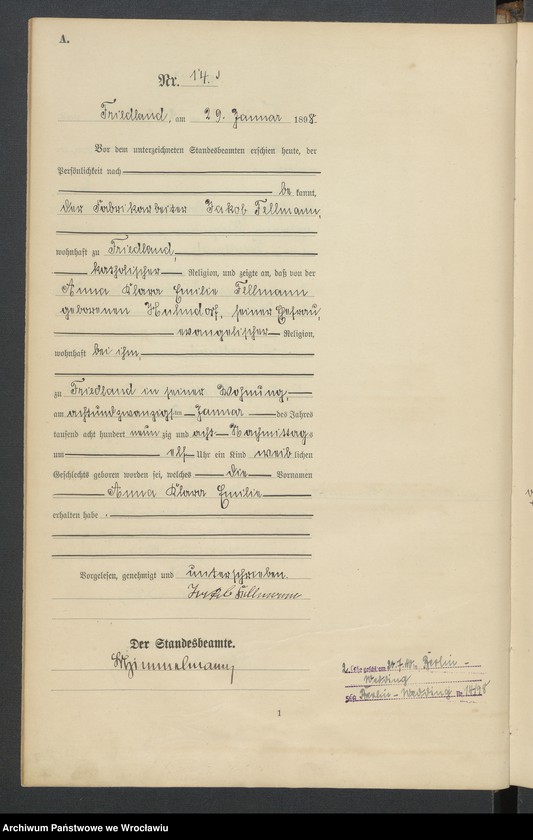 A.
Nr. 14.
Friedland, am 29. Januar 1898.
Vor dem unterzeichneten Standesbeamten erschien heute, der
Persönlichkeit nach
be kannt,
der Fabrikarbeiter Jakob Fellmann,
wohnhaft zu Friedland,
katholischer Religion, und zeigte an, daß von der
Anna Klara Emilie Fellmann
geborenen, seiner Ehefrau,
evangelischer Religion,
wohnhaft bei ihm,
zu Friedland in seiner Wohnung,
am achtundzwanzigten Januar des Jahres
tausend acht hundert neun zig und acht Nachmittags
um elf Uhr ein Kind weib lichen
Geschlechts geboren worden sei, welches die Vornamen
Anna Klara Emilie
erhalten habe.
Vorgelesen, genehmigt und unterschrieben.
Jakob Fellmann
Der Standesbeamte.
Himmelmann
2. Ehe geschl. am Berlin-
Wedding
Berlin-Wedding Nr.
1
Archiwum Państwowe we Wrocławiu